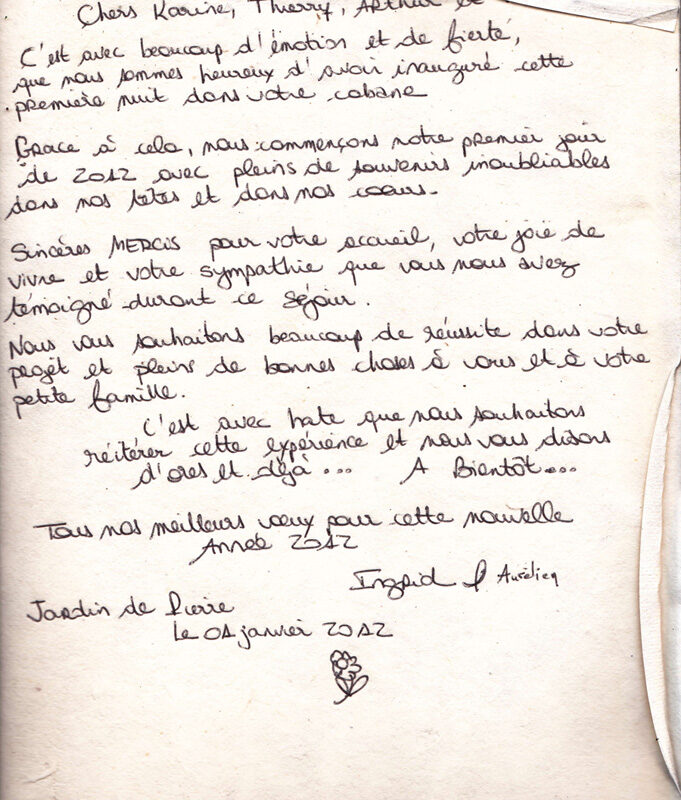 Chers Karine, Thierry, Arthur et
C'est avec beaucoup d'émotion et de fierté,
que nous sommes heureux d'avoir inauguré cette
première nuit dans votre cabane
Grace à cela, nous commençons notre premier jour
de 2012 avec pleins de souvenirs inoubliables
dans nos têtes et dans nos coeurs.
Sincères MERCIS pour votre accueil, votre joie de
vivre et votre sympathie que vous nous avez
témoigné durant ce séjour.
Nous vous souhaitons beaucoup de réussite dans votre
projet et pleins de bonnes choses à vous et à votre
petite famille.
C'est avec hate que nous souhaitons
réitérer cette expérience et nous vous disons
d'ores et déjà... A Bientôt...
Tous nos meilleurs voeux pour cette nouvelle
Année 2012
Ingrid & Aurélien
Jardin de Pierre
Le 01 janvier 2012